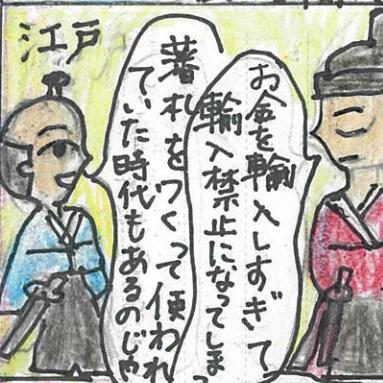 江戸
お金を輸入しすぎて
輸入禁止になってしまっ
著札をつくって使われ
ていた時代もあるのじゃ